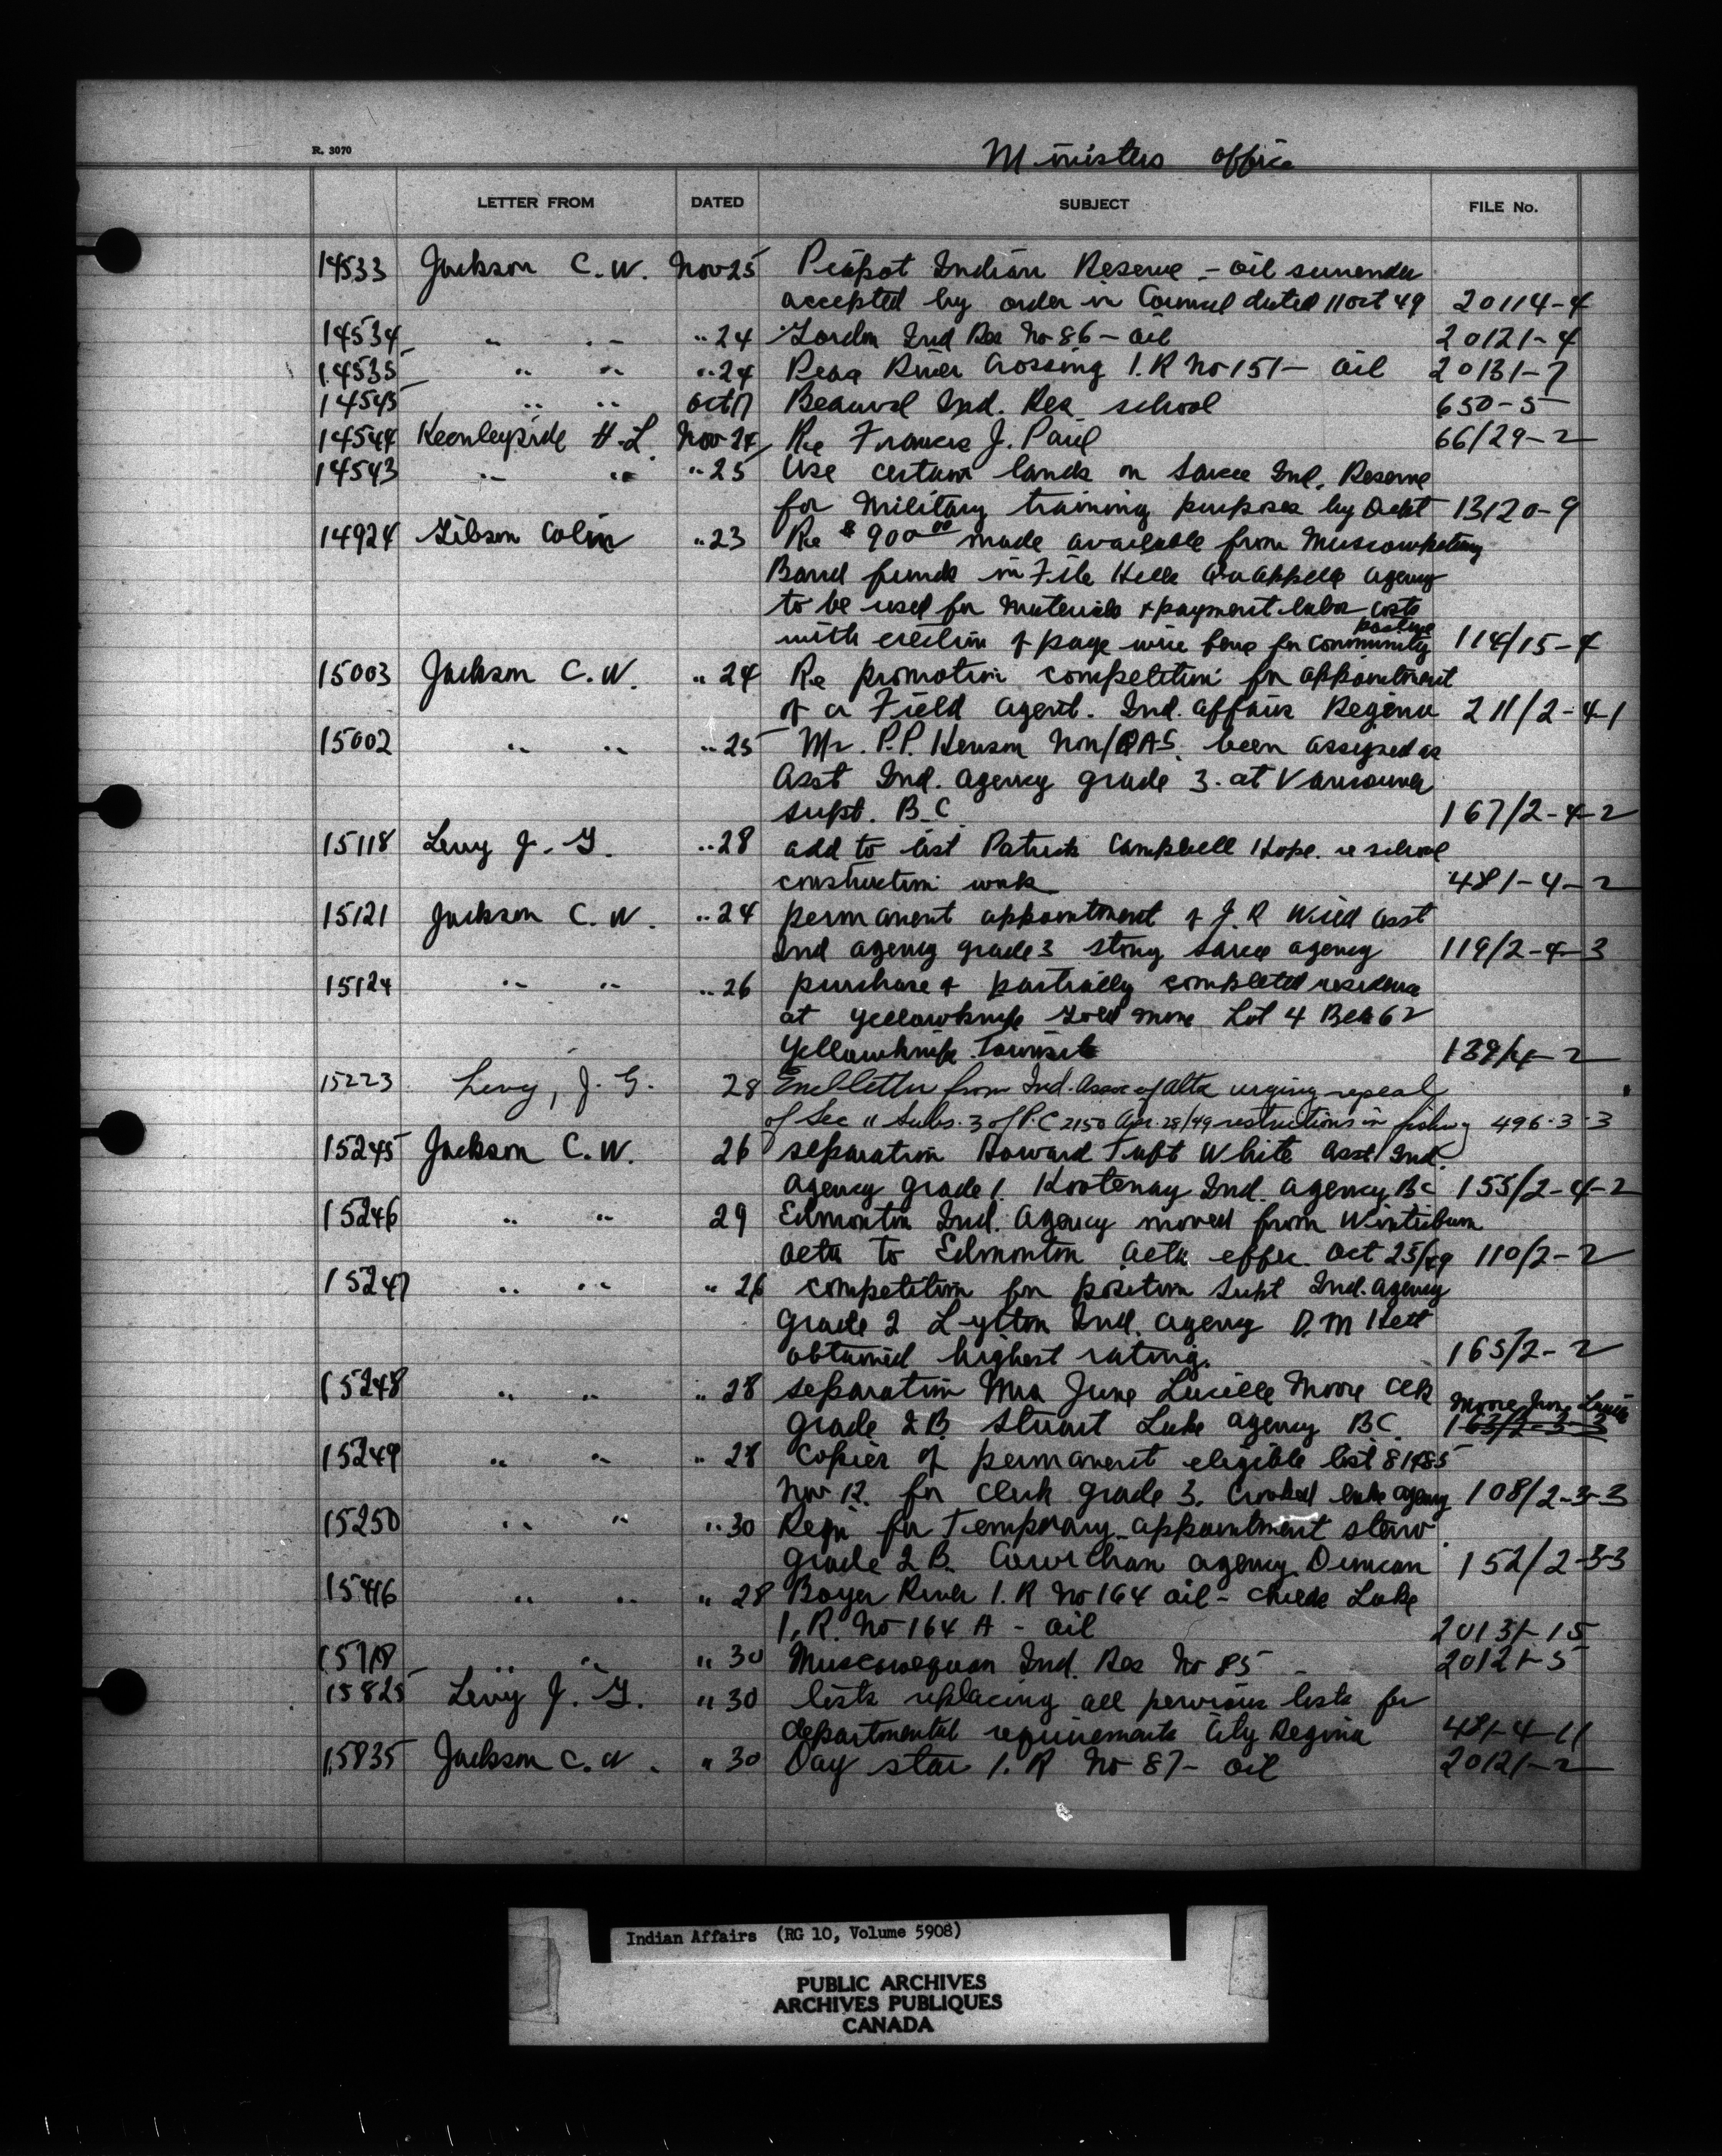 R. 3070
Ministers office
LETTER FROM DATED SUBJECT FILE No.
14533 Jackson C. W. Nov 25 Piapot Indian Reserve - oil surrender
accepted by order in Council dated 11 oct 49 20114-4
14534 " " " 24 Gordon Ind Res No 86 - oil 20121-4
14535 " " " 24 Peace River Crossing I. R No 151 - oil 20131-7
14545 " " Oct 17 Beauval Ind. Res. school 650-5
14544 Keenleyside H. L. Nov 24 Re Francis J. Paul 66/29-2
14543 " " " 25 Use certain lands on Sarcee Ind. Reserve
for Military training purposes by Dept 13120-9
14924 Gibson Colin " 23 Re $900 00 made available from Muscowpetung
Band funds in File Hills Qu'Appelle agency
to be used for materials & payment labor costs
with erection of page wire fence for community pasture 114/15-4
15003 Jackson C. W. " 24 Re promotion competition for appointment
of a Field Agent. Ind. Affairs Regina 211/2-4-1
15002 " " " 25 Mr. P.P. Henson been assigned as
Asst Ind. Agency grade 3. at Vancouver
supt. B.C. 167/2-4-2
15118 Levy J. G. " 28 add to list Patrick Campbell Hope. re school
construction work 481-4-2
15121 Jackson C. W. " 24 permanent appointment of J. R Wild Asst
Ind Agency grade 3 Stony Sarcee agency 119/2-4-3
15124 " " " 26 purchase of partially completed residence
at Yellowknife Gold Mine Lot 4 62
Yellowknife Townsite 139/4-2
15223 Levy, J. G. 28 Encl letter from Ind. Assoc of Alta urging repeal
of Sec 11 Subs. 3 of P.C 2150 Apr. 28/49 restrictions in fishing 496-3-3
15245 Jackson C. W. 26 separation Howard Taft White Asst Ind.
Agency grade 1. Kootenay Ind. Agency BC 155/2-4-2
15246 " " 29 Edmonton Ind. Agency moved from Winterburn
Alta to Edmonton Alta effec. Oct 25/49 110/2-2
15247 " " " 26 competition for position supt Ind. Agency
Grade 2 Lytton Ind. Agency D. M Hett
obtained highest rating. 165/2-2
15248 " " " 28 separation Mrs June Lucille Moore Clk Moore June Lucille
grade 2B. Stuart Lake Agency BC. 163/2-3-3
15249 " " " 28 Copies of permanent eligible list 81485
Nov 12. for Clerk grade 3. Crooked Lake agency 108/2-3-3
15250 " " " 30 Reqn for Temporary appointment steno
grade 2 B. Cowichan agency Duncan 152/2-3-3
15416 " " " 28 Boyer River I. R No 164 oil - Childs Lake
I. R. No 164 A - oil 20131-15
15718 " " " 30 Muscowequan Ind. Res No 85 - 20121-5
15825 Levy J. G. " 30 lists replacing all pervious lists for
departmental requirements City Regina 481-4-11
15835 Jackson C. W. " 30 Day star I. R No 87 - oil 20121-2
Indian Affairs (RG 10, Volume 5908)
PUBLIC ARCHIVES
ARCHIVES PUBLIQUES
CANADA